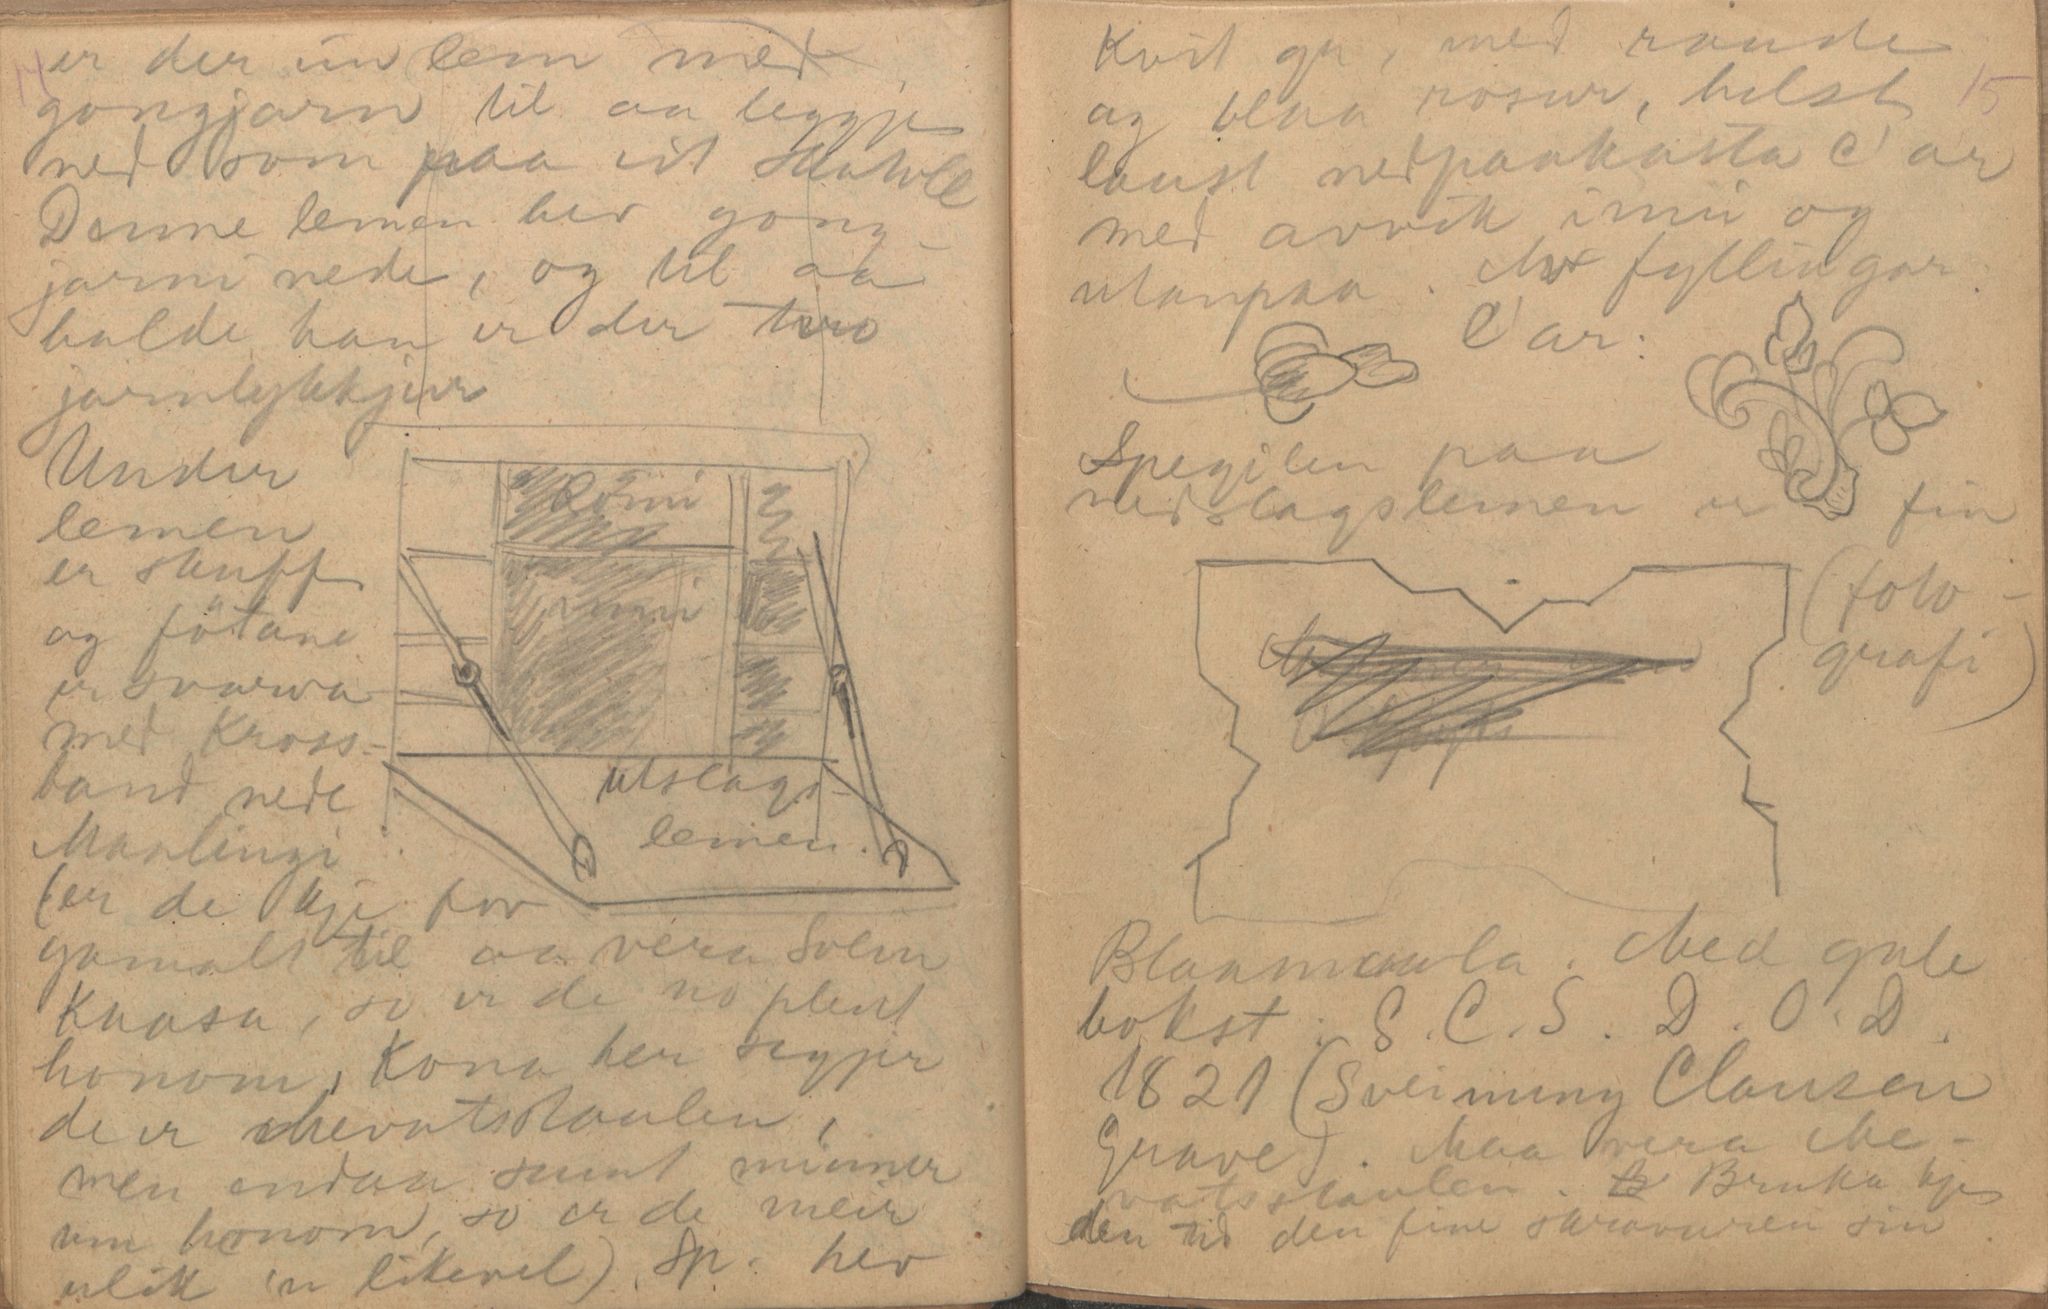 14
er der ein lem med
gongjarn til aa leggje
ned som paa eit skatoll
Denne lemen hev gong-
jarni nede, og til aa
halde han er der two
jarnlykkjur
Under
lemen
er skuff
og fötane
er svarva
med Kross-
band nede
Maalingi
(er de kje for
gamalt til aa vera Svein
Kaasa, so er de no plent
honom, Kona her segjer
de er Mevatsstaulen,
men endaa sumt minner
um honom, so er de meir
ulik 'n likevel). Sp. hev
romi
romi
utslags-
lemen.
15
Kvit gr, med raude
og blaa rosur, helst
laust nedpaakasta C'ar
med avvik inni og
utanpaa. Mr fyllingar
C'ar:
Spegilen paa
nedslagslemen er fin
(foto-
grafi)
Blaamaala. Med gule
bokst: S. C. S. D. O. D.
1821 (Sveinung Clausen
Grave). Maa vera Me-
vatsstaulen. Bruka kje
den tid den fine skravuren sin